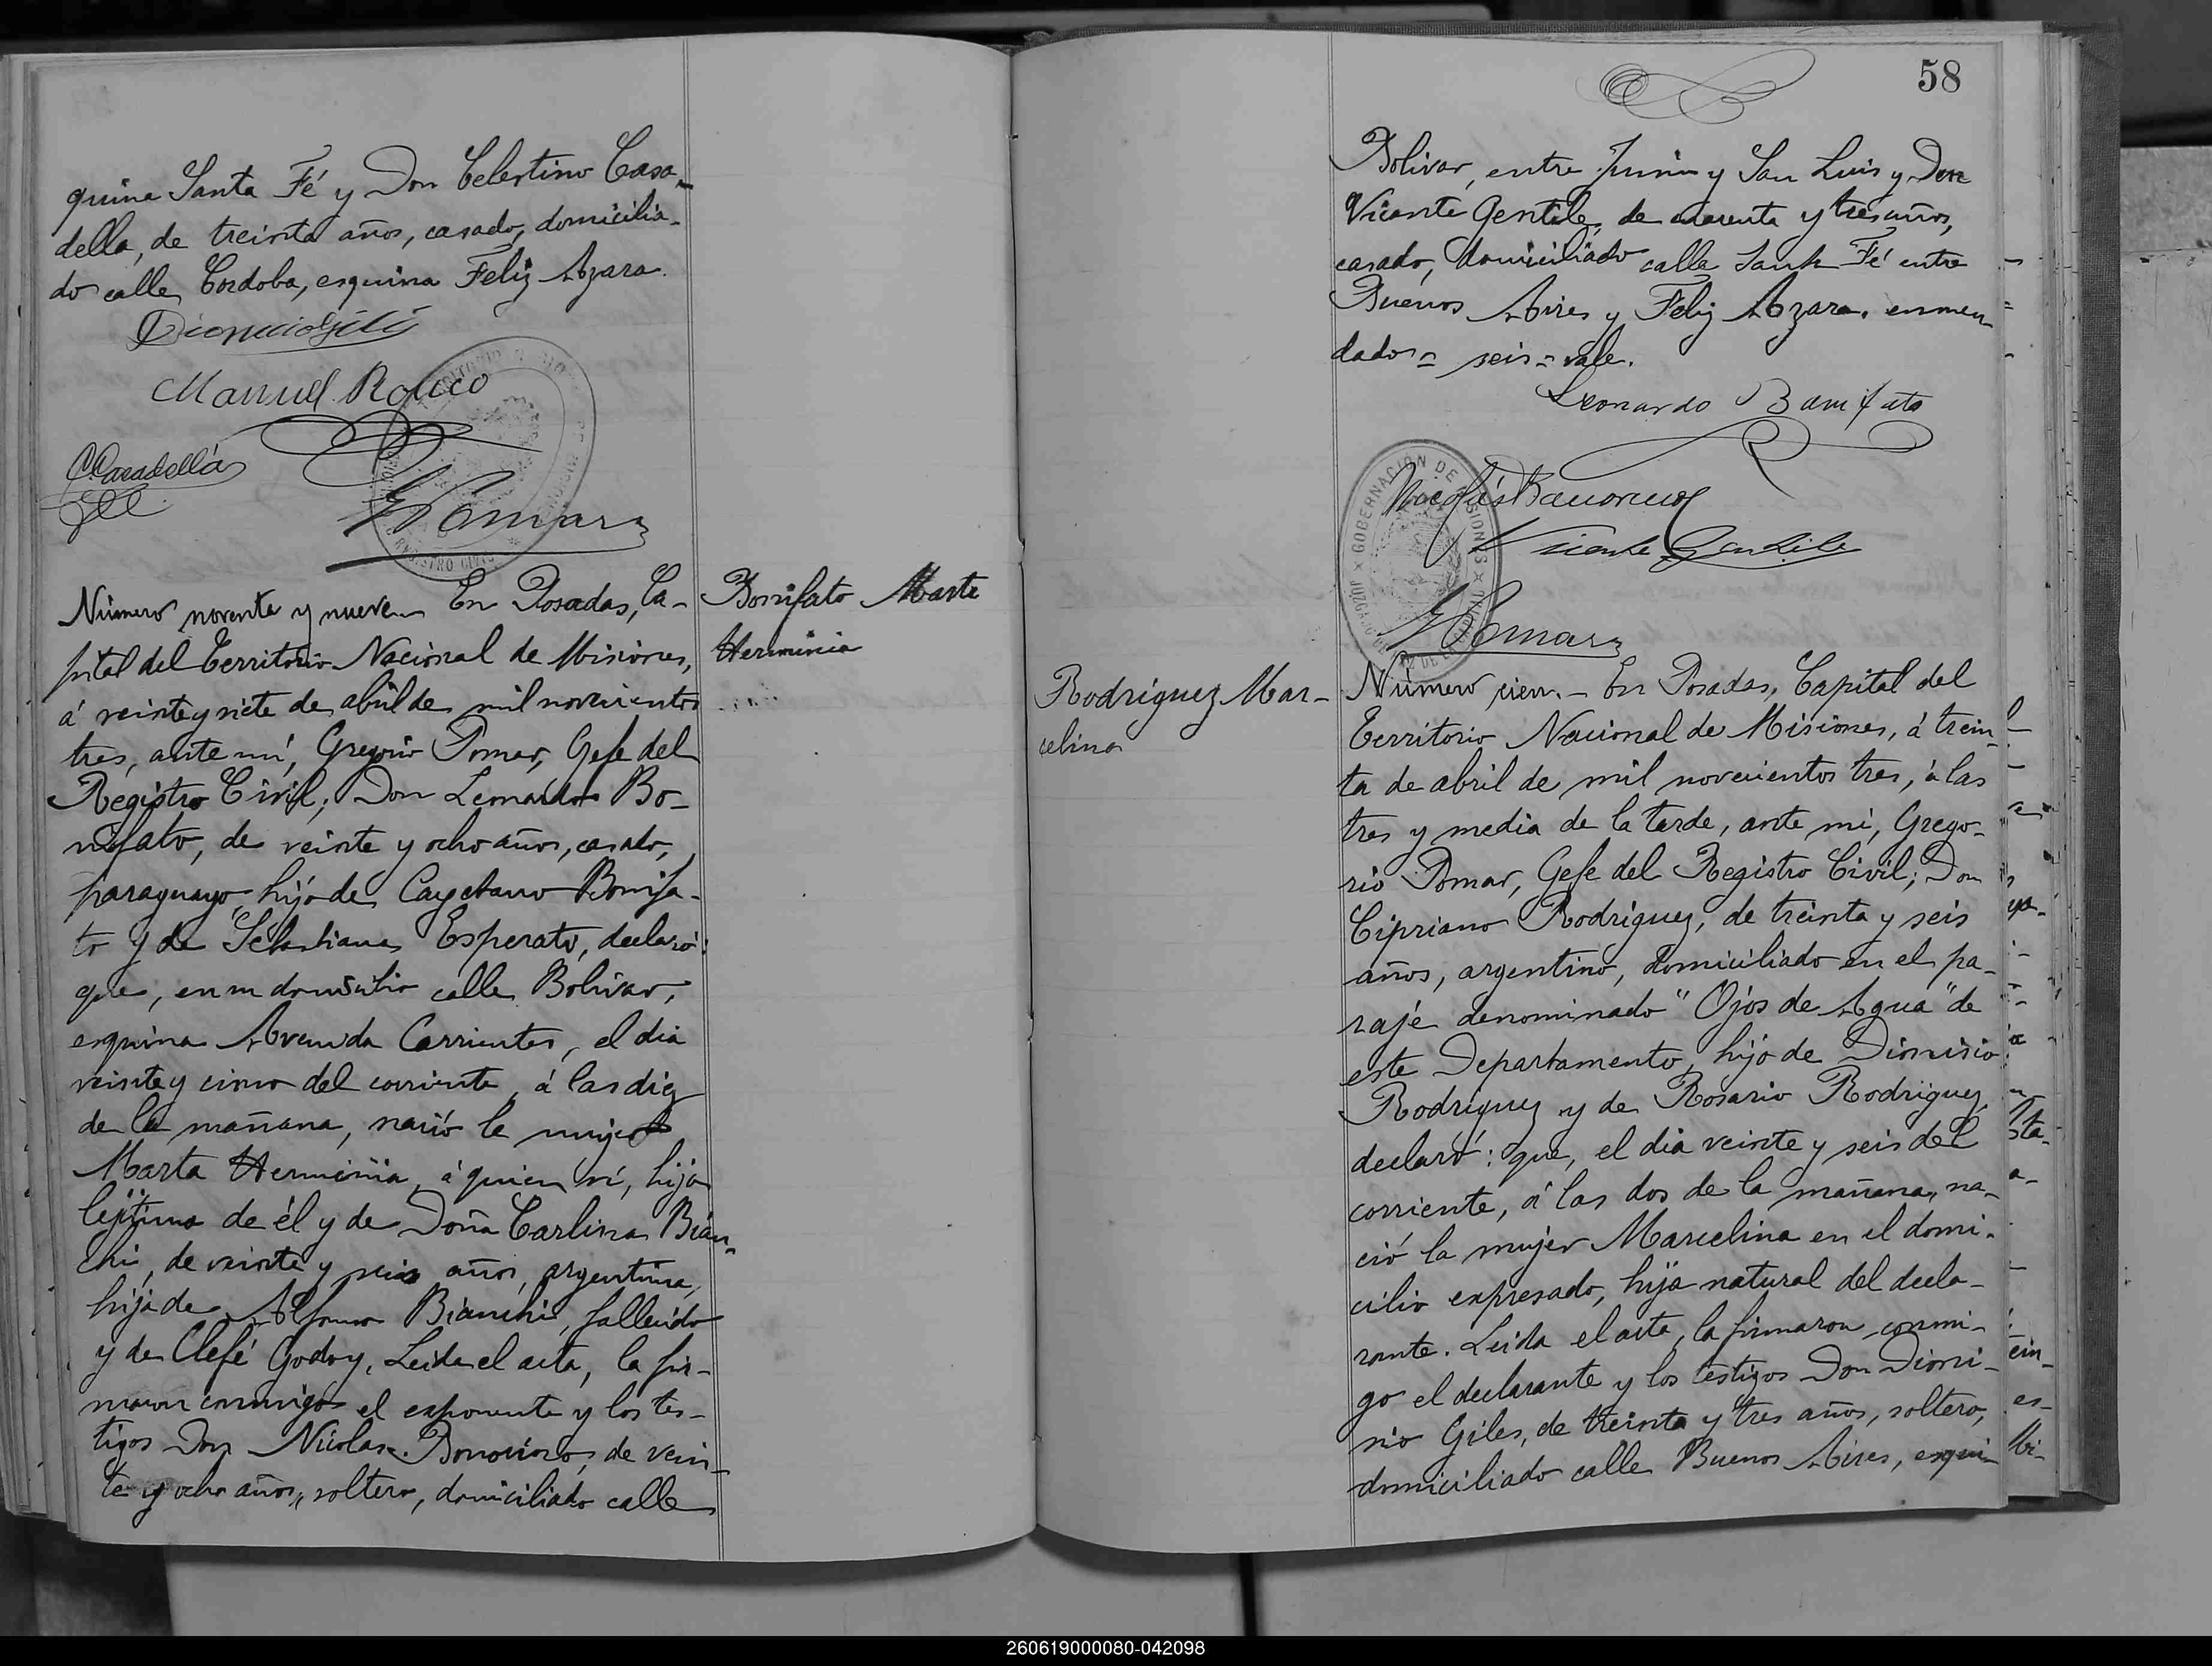 quina Santa Fé y Don Celestino Casa-
della, de treinta años, casado, domicilia-
do calle Cordoba, esquina Feliz Azara.
Manuel Rouco
C. Casadella
G Pomar
Número noventa y nueve. En Posadas, Ca-
pital del Territorio Nacional de Misiones,
á veinte y siete de abril de mil novecientos
tres, ante mí, Gregorio Pomar, Gefe del
Registro Civil; Don Leonardo Bo-
nifato, de veinte y ocho años, casado,
paraguayo, hijo de Cayetano Bonifa-
to y de Sebastiana Esperato, declaró:
que, en su domicilio calle Bolivar,
esquina Avenida Corrientes, el dia
veinte y cinco del corriente, á las diez
de la mañana, nació la mujer
Marta Herminia, á quien ví, hija
lejítima de él y de Doña Carlina Bian-
chi, de veinte y seis años, argentina,
hija de Alfonso Bianchi, fallecido
y de Clefé Godoy. Leida el acta, la fir-
maron conmigo el exponente y los tes-
tigos Don Nicolas Bonorino, de vein-
te y ocho años, soltero, domiciliado calle
Bonifato Marta
Herminia
58
Bolivar, entre Junin y San Luis y Don
Vicente Gentile, de cuarenta y tres años,
casado, domiciliado calle Santa Fé entre
Buenos Aires y Feliz Azara. enmen-
dado = seis = vale.
Leonardo Bonifato
Vicente Gentile
G Pomar
GOBERNACIÓN DE MISIONES
Rodriguez Mar-
celina
Número cien. - En Posadas, Capital del
Territorio Nacional de Misiones, á trein-
ta de abril de mil novecientos tres, á las
tres y media de la tarde, ante mi, Grego-
rio Pomar, Gefe del Registro Civil; Don
Cipriano Rodriguez, de treinta y seis
años, argentino, domiciliado en el pa-
raje denominado "Ojos de Agua" de
este Departamento, hijo de Dionisio
Rodriguez y de Rosario Rodriguez,
declaró: que, el dia veinte y seis del
corriente, á las dos de la mañana, na-
ció la mujer Marcelina en el domi-
cilio expresado, hija natural del decla-
rante. Leida el acta, la firmaron conmi-
go el declarante y los testigos Don Dioni-
sio Giles, de treinta y tres años, soltero,
domiciliado calle Buenos Aires, esqui-
260619000080-042098